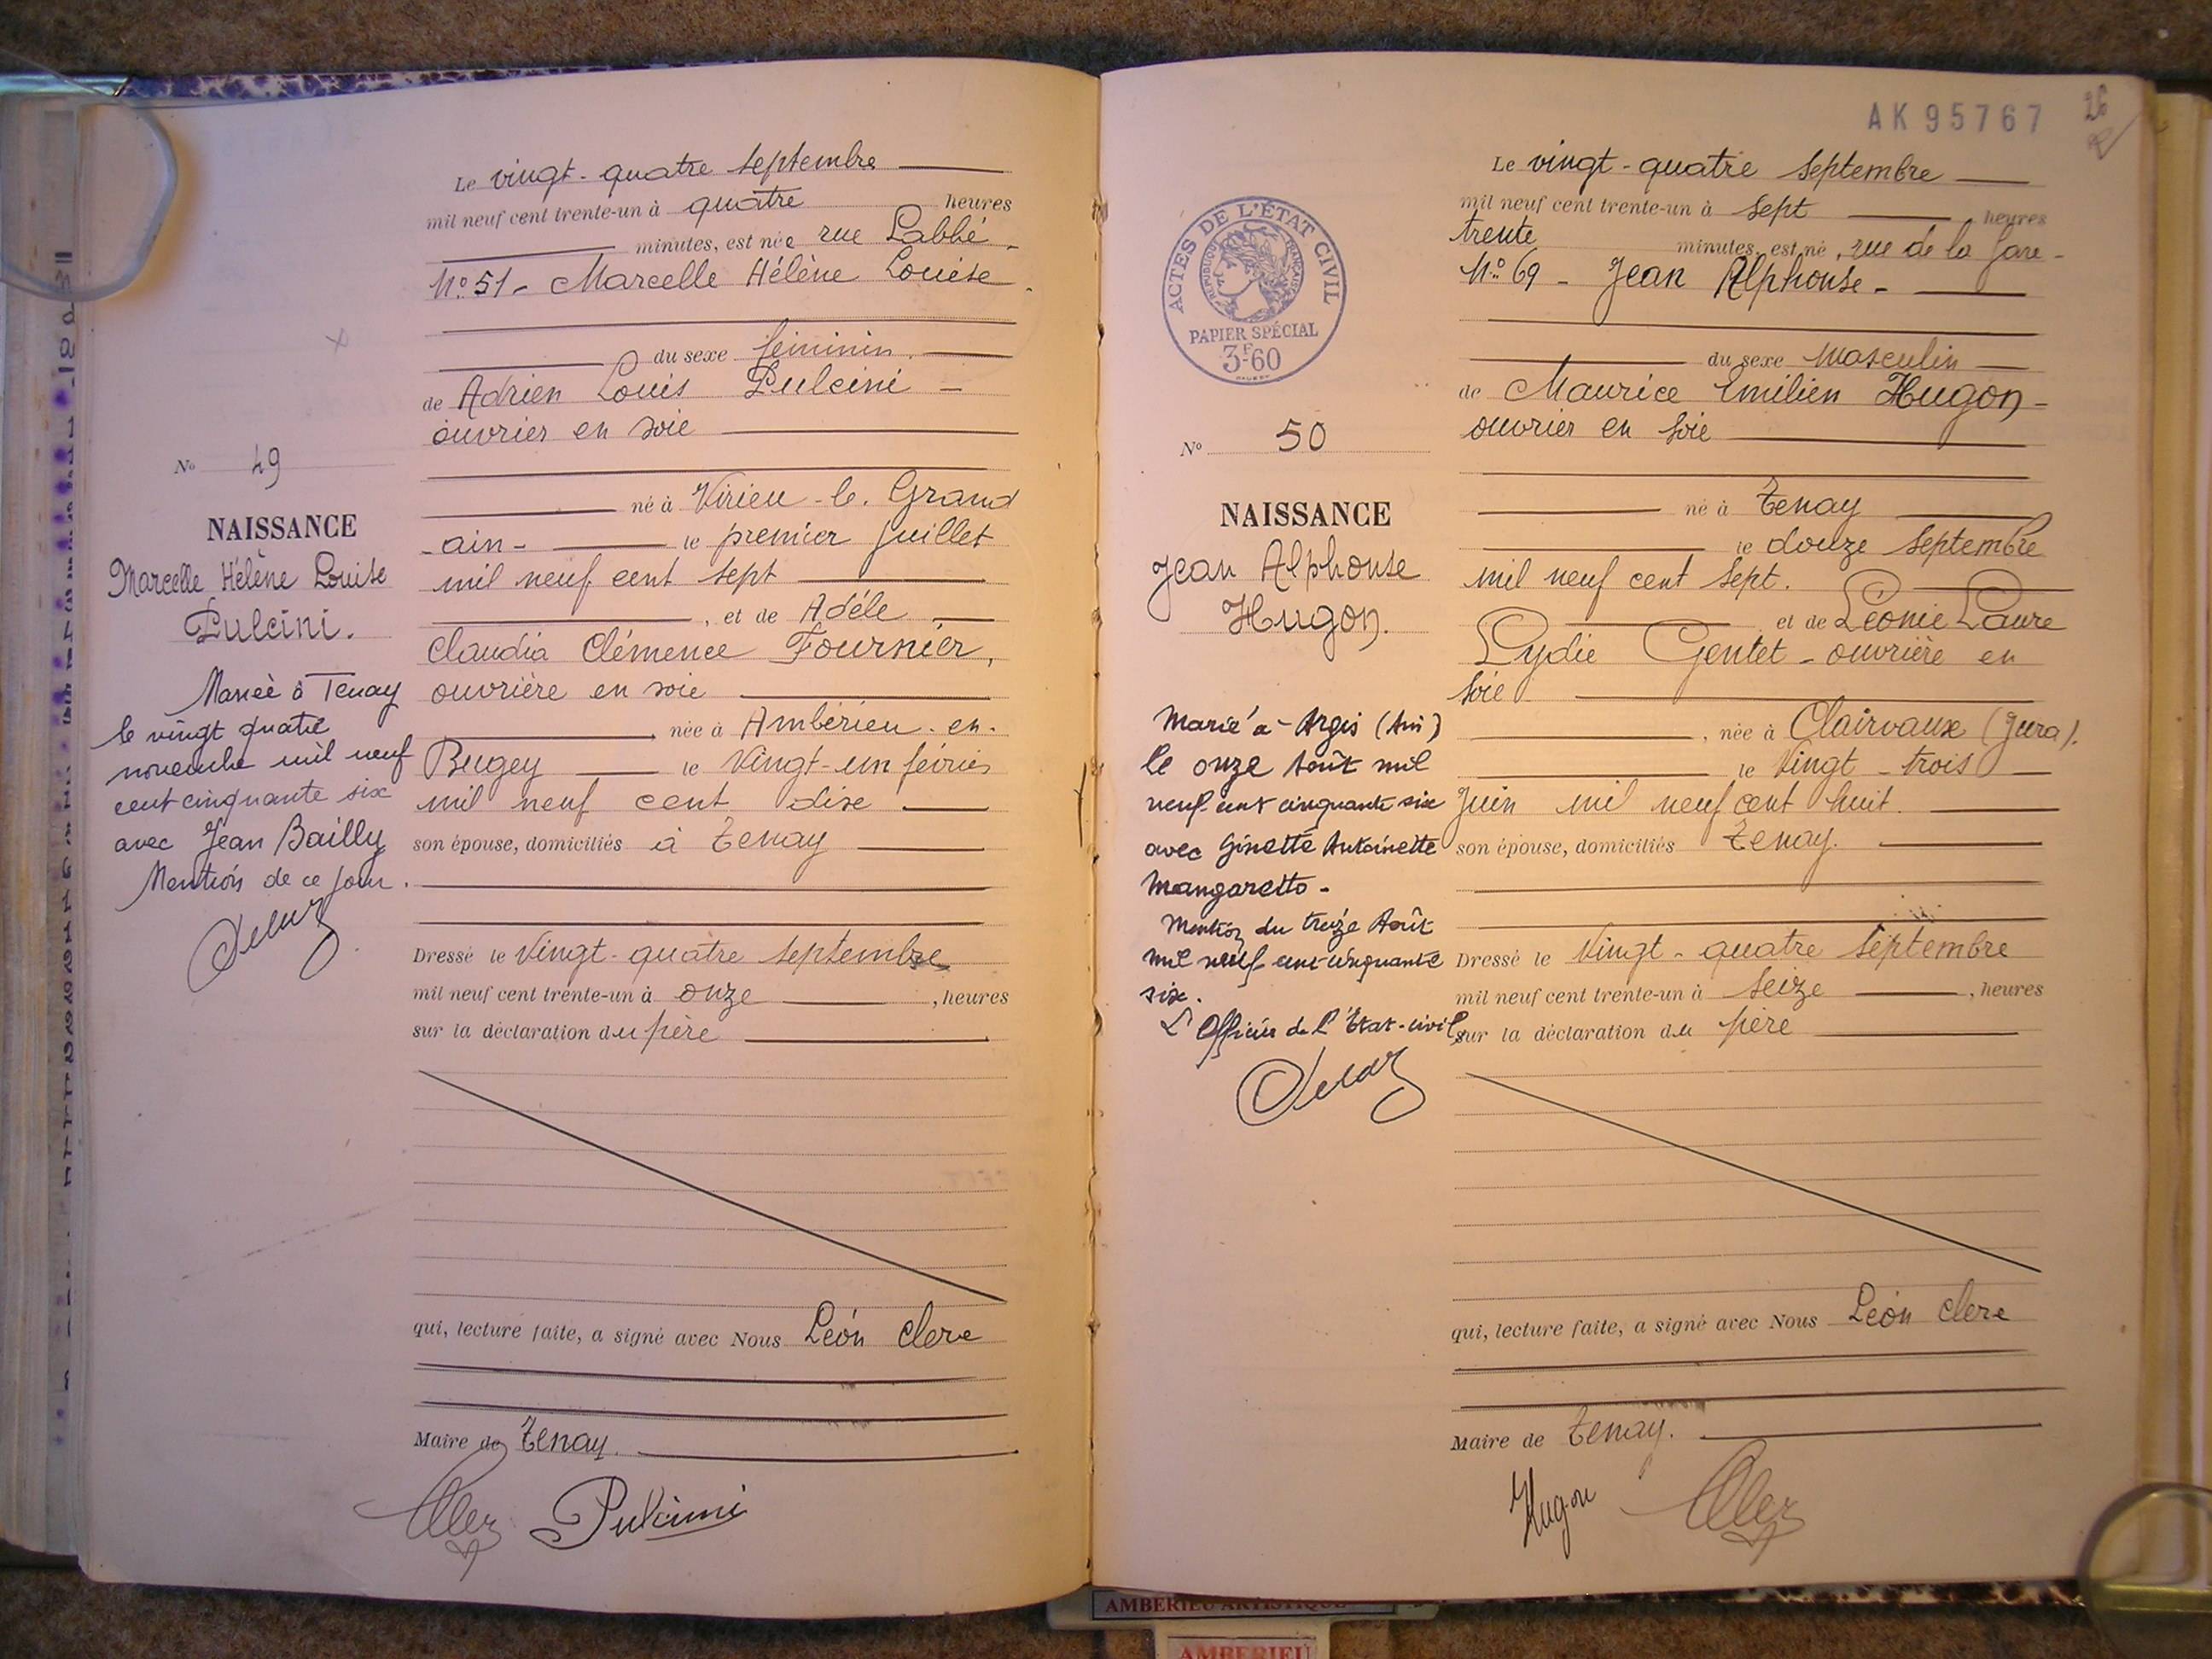 Le vingt-quatre septembre
mil neuf cent trente-un à quatre heures
minutes, est née rue Labbé
No 51 - Marcelle Hélène Louise
du sexe féminin.
de Adrien Louis Pulcini
ouvrier en soie
né à Virieu-le-Grand
-ain- le premier Juillet
mil neuf cent sept
, et de Adèle
Claudia Clémence Fournier,
ouvrière en soie
née à Ambérieu-en-
Bugey le Vingt-un février
mil neuf cent dix
son épouse, domiciliés à Tenay
Dressé le Vingt-quatre septembre
mil neuf cent trente-un à onze , heures
sur la déclaration du père
qui, lecture faite, a signé avec Nous Léon Clere
Maire de Tenay.
Pulcini
No 49
NAISSANCE
Marcelle Hélène Louise
Pulcini.
Mariée à Tenay
le vingt quatre
novembre mil neuf
cent cinquante six
avec Jean Bailly
Mention de ce jour.
AK95767
26
ACTES DE L'ÉTAT CIVIL
RÉPUBLIQUE FRANÇAISE
PAPIER SPÉCIAL
3F60
No 50
NAISSANCE
Jean Alphonse
Hugon.
Marié à Argis (Ain)
le onze Août mil
neuf cent cinquante six
avec Ginette Antoinette
Mangaretto -
Mention du treize Août
mil neuf cent cinquante
six.
L'Officier de l'Etat-civil,
Le vingt-quatre septembre
mil neuf cent trente-un à sept heures
trente minutes, est né, rue de la Gare -
No 69 - Jean Alphonse -
du sexe masculin
de Maurice Emilien Hugon -
ouvrier en soie
né à Tenay
le douze septembre
mil neuf cent sept.
et de Léonie Laure
Lydie Gentet - ouvrière en
soie
, née à Clairvaux (Jura).
le Vingt-trois
Juin mil neuf cent huit.
son épouse, domiciliés Tenay.
Dressé le Vingt-quatre septembre
mil neuf cent trente-un à seize , heures
sur la déclaration du père
qui, lecture faite, a signé avec Nous Léon Clere
Maire de Tenay.
Hugon
AMBERIEU ARTISTIQUE
AMBERIEU